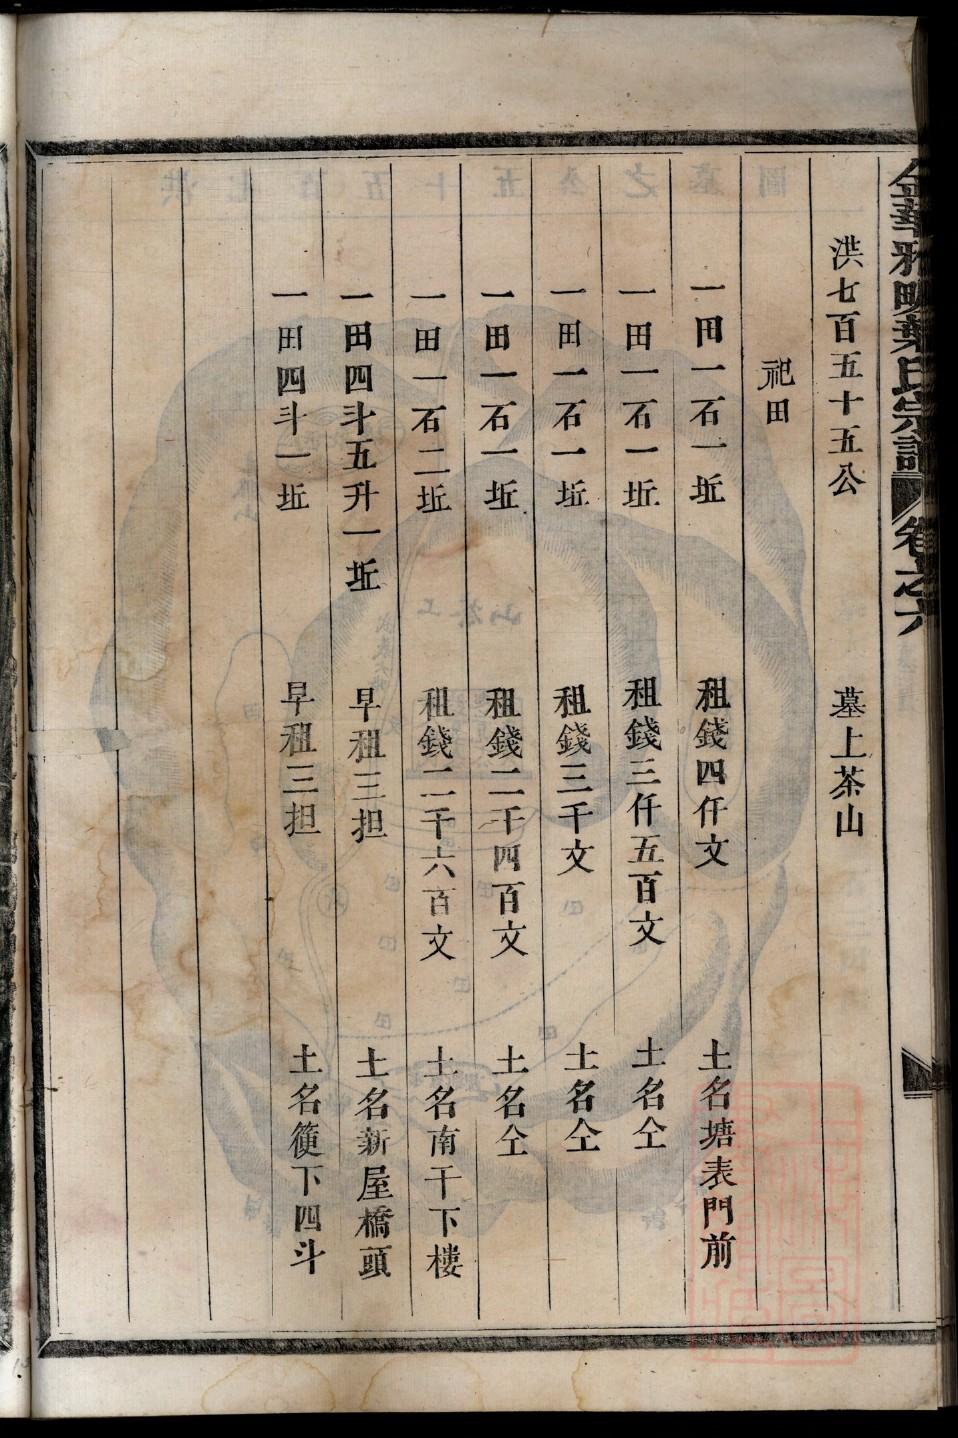 金華雅畈葉氏宗譜 卷之六
洪七百五十五公 墓上茶山
祀田
一田一石一坵 租錢四仟文 土名塘表門前
一田一石一坵 租錢三仟五百文 土名仝
一田一石一坵 租錢三千文 土名仝
一田一石一坵 租錢二千四百文 土名仝
一田一石二坵 租錢二千六百文 土名南干下樓
一田四斗五升一坵 早租三担 土名新屋橋頭
一田四斗一坵 早租三担 土名䈎下四斗